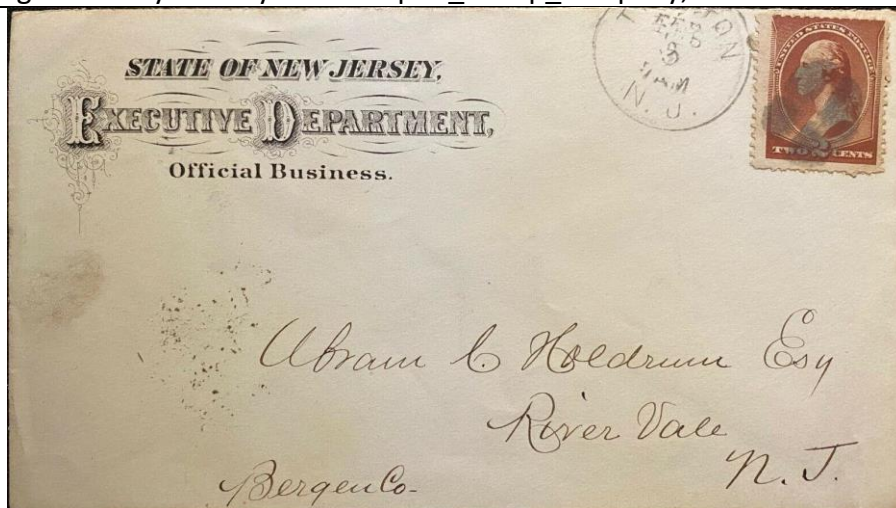 STATE OF NEW JERSEY,
EXECUTIVE DEPARTMENT,
Official Business.
TON
FEB
8
AM
N. J.
UNITED STATES POSTAGE
TWO CENTS
2
Abram C. Holdrum Esq
River Vale
N. J.
Bergen Co-